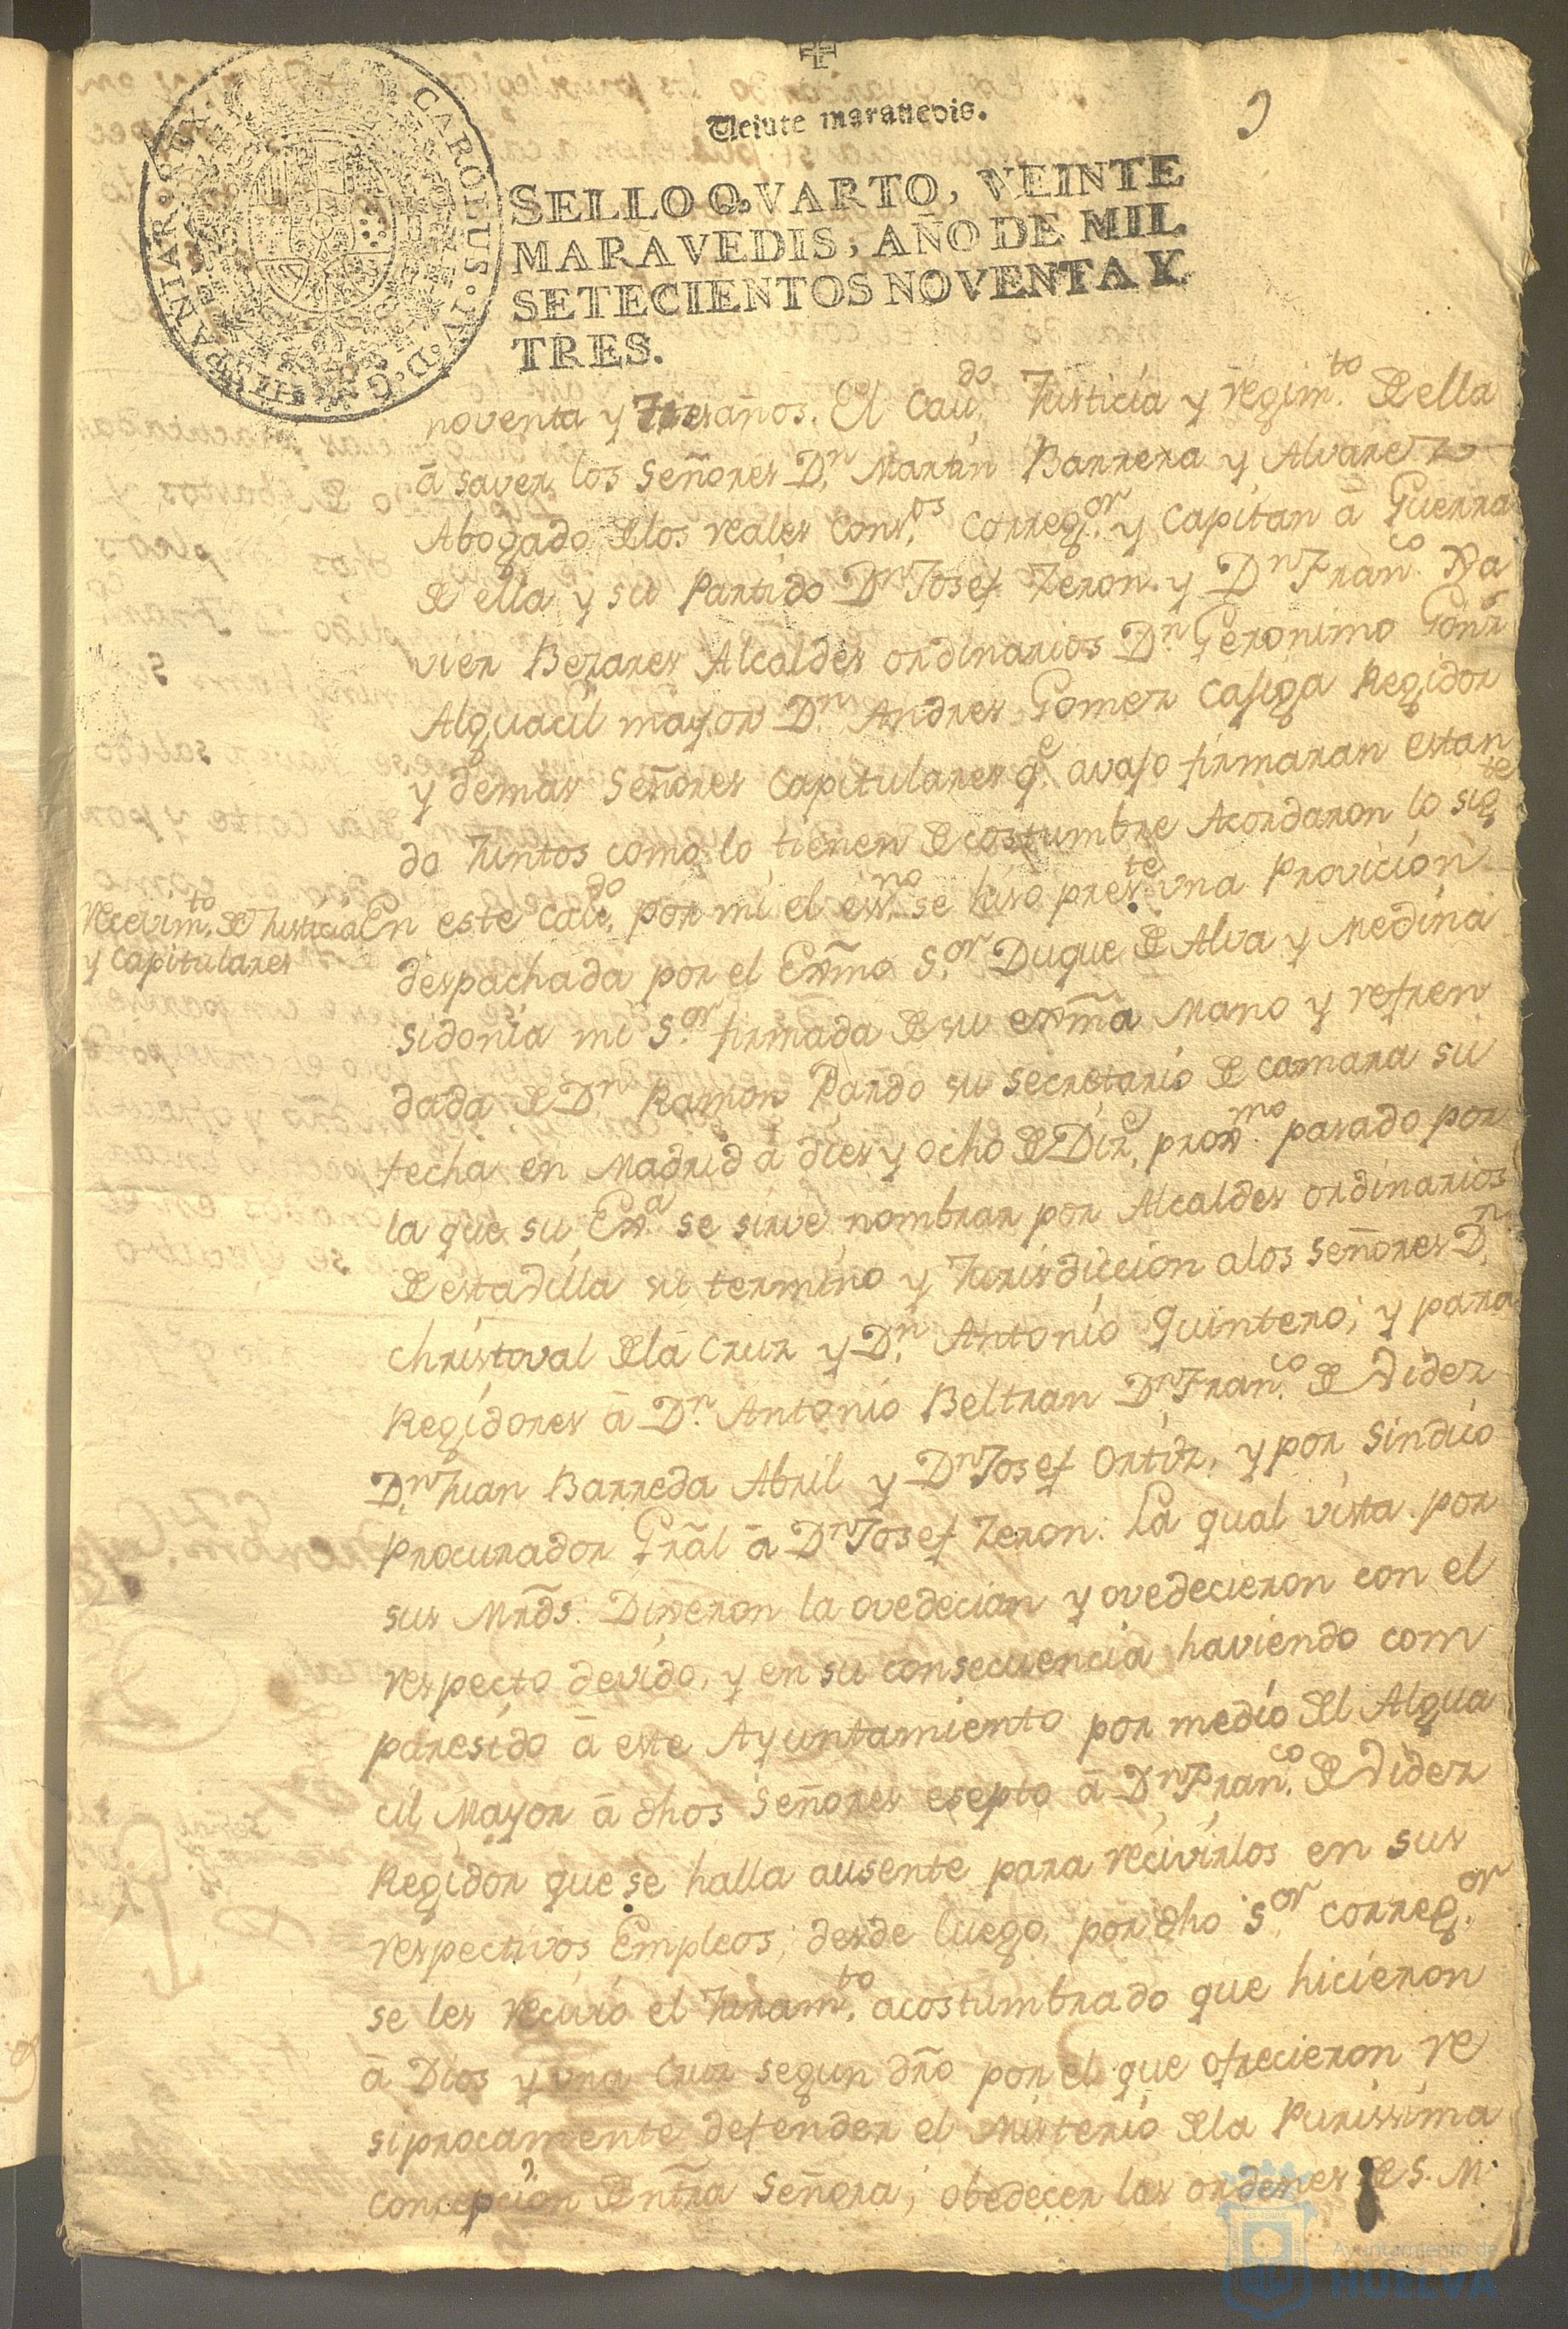 Veinte maravedis.
SELLO QVARTO, VEINTE
MARAVEDIS, AÑO DE MIL
SETECIENTOS NOVENTA Y
TRES.
CAROLUS. IV. D. G. HISPANIAR. REX.
noventa y tres años. El Cavdo. Justicia y regimto. de ella
â saver los Señores Dn. Martin Barrera y Alvarez
Abogado delos reales Consos. Corregor. y Capitan â Guerra
de ella y su Partido Dn. Josef Zeron. y Dn. Franco. Xa
vier Bezares Alcaldes ordinarios Dn. Geronimo Gonz
Alguacil mayor Dn. Andres Gomez Regidor
y demas Señores Capitulares qe. avajo firmaran estan
do Juntos como lo tienen de costumbre Acordaron lo sigte
Recevimto. de Justicia
y Capitulares
En este Cavdo. por mi el esno. se hiso preste. una Provicion
despachada por el Exmo. Sor. Duque de Alva y Medina
sidonia mi Sor. firmada de su exma Mano y refren
dada de Dn. Ramon Pardo su secretario de camara su
fecha en Madrid â dies y ocho de Dize. proxmo. pasado por
la que su Exa. se sirve nombrar por Alcaldes ordinarios
de esta dilla su termino y Jurisdiccion alos Señores Dn.
Christoval dela Cruz y Dn. Antonio Quintero; y para
Regidores â Dn. Antonio Beltran Dn. Franco. de Videz
Dn. Juan Barreda Abril y Dn. Josef Ortiz, y por Sindico
Procurador Grãl â Dn. Josef Zeron. La qual vista por
sus Mrds. Dixeron la ovedecian y ovedecieron con el
respecto devido, y en su consecuencia haviendo com
paresido â este Ayuntamiento por medio del Algua
cil Mayor â dhos Señores esepto â Dn. Franco. de Videz
Regidor que se halla ausente para recivirlos en sus
respectivos Empleos; desde luego, por dho Sor. Corregor.
se les recivió el Juramto. acostumbrado que hicieron
â Dios y una Cruz segun dro por el que ofrecieron re
siprocamente defender el Misterio dela Purissima
Concepcion de ntra Señora; obedecer las ordenes de S. M.
Ayuntamiento de
HUELVA